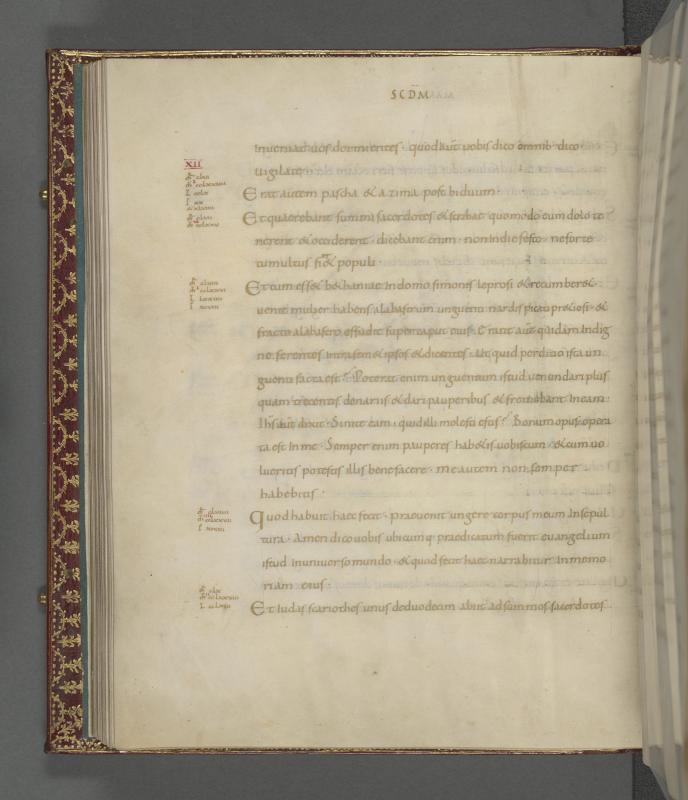 SCDM
inveniat vos dormientes · quod aut vobis dico omnib; dico ·
XII
vigilate
Erat autem pascha & azima post biduum ·
Et quaerebant summi sacerdotes & scribae quomodo eum dolo te
nerent & occiderent · dicebant enim · non in die festo · ne forte
tumultus fier& populi ·
Et cum ess& bethaniae in domo simonis leprosi & recumber& ·
venit mulier habens alabastrum unguenti nardi spicati praetiosi · &
fracto alabastro effudit super caput eius · Erant aut quidam indig
ne ferentes intra sem&ipsos & dicentes · ut quid perditio ista un
guenti facta est? Poterat enim unguentum istud venundari plus
quam trecentis denariis & dari pauperibus & fremebant in eam ·
Ihs aut dixit · Sinite eam · quid illi molesti estis? Bonum opus opera
ta est in me · Semper enim pauperes hab&is vobiscum · & cum vo
lueritis potestis illis benefacere · me autem non semper
habebitis ·
Quod habuit haec fecit · praevenit ungere corpus meum in sepul
tura · Amen dico vobis ubicumq; praedicatum fuerit evangelium
istud in universo mundo · & quod fecit haec narrabitur in memo
riam eius ·
Et iudas scariothes unus de duodecim abiit ad summos sacerdotes